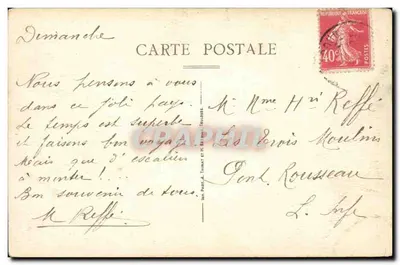 Dimanche
CARTE POSTALE
REPUBLIQUE FRANCAISE
40c
POSTES
Nous pensons à vous
dans ce joli pays.
Le temps est superbe
et faisons bon voyage
Mais que d'escaliers
à monter ! . . .
Bon souvenir de tous.
M Reffé.
M. Mme Hri Reffé
Les Trois Moulins
Pont Rousseau
L. Infre
CPARAMA